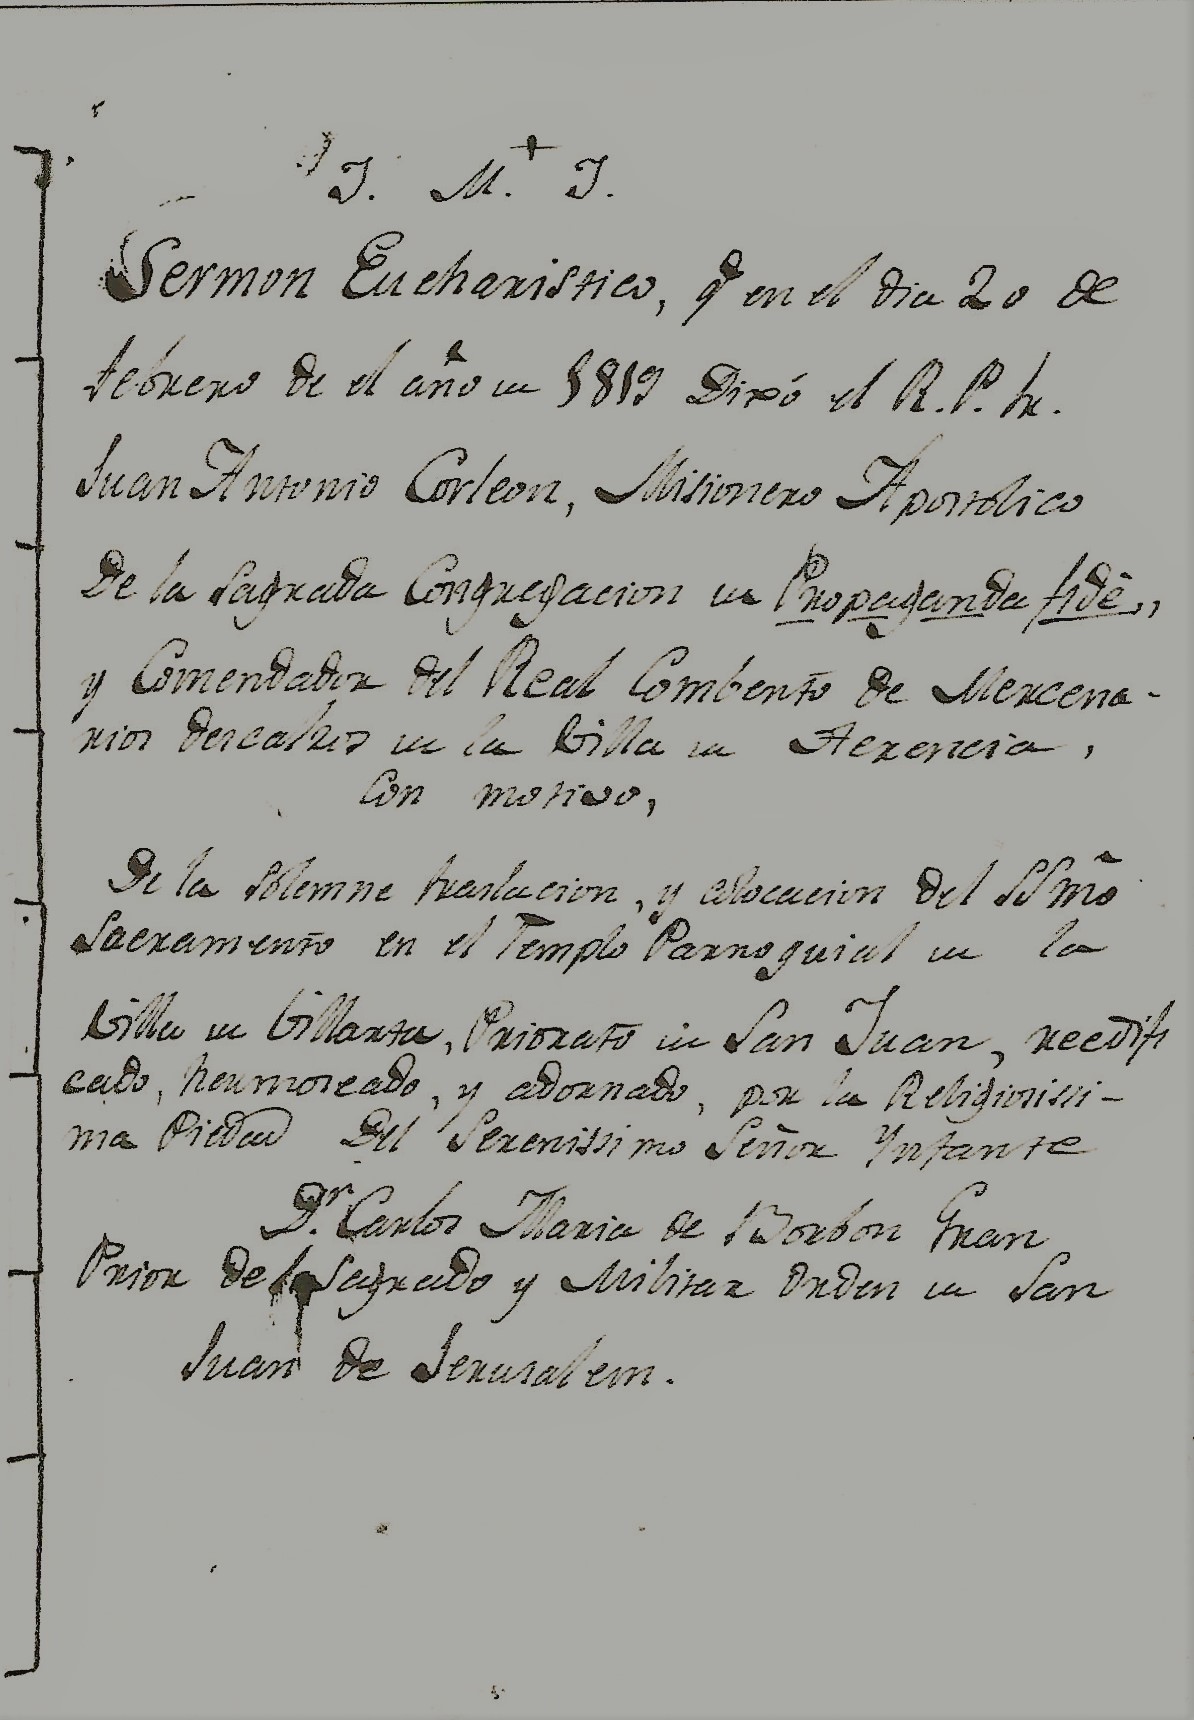 J. M.+ J.
Sermon Eucharistico, q̃ en el dia 20 de
febrero de el año de 1819 Dixó el R. P. fr.
Juan Antonio Corleon, Misionero Apostólico
De la Sagrada Congregacion de Propaganda fidê,,
y Comendador del Real Combento de Mercena-
rios descalzos de la Billa de Herencia,
Con motivo,
De la solemne traslacion, y colocacion del SSmõ
Sacramento en el Templo Parroquial de la
Billa de Billarta, Priorato de San Juan, reedifi
cado, hermoseado, y adornado, por la Religiosissi-
ma Piedad Del Serenissimo Señor Ynfante
Dr. Carlos Maria de Borbon Gran
Prior de la Sagrado y Militar Orden de San
Juan de Jerusalem.